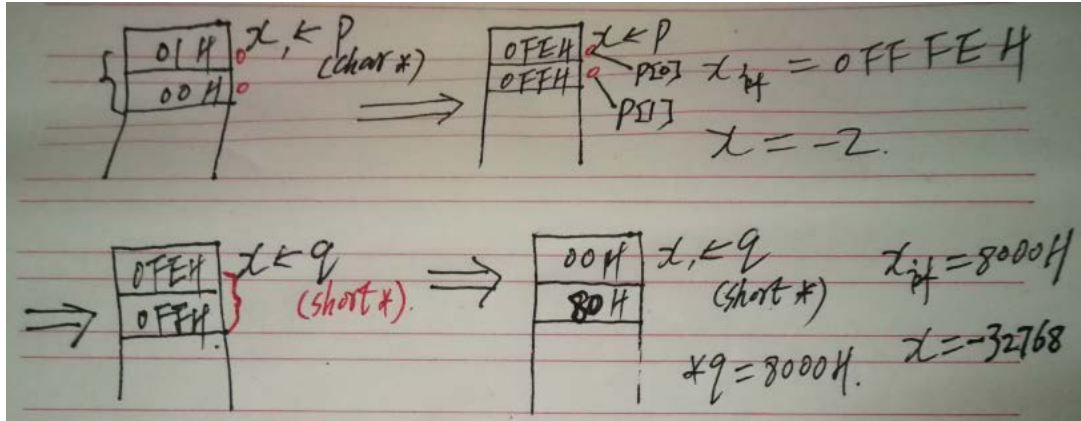 01H x, ← P
00H (char *)
⇒
0FEH x ← P
0FFH P[0]
P[1]
x补 = 0FFFEH
x = -2.
⇒
0FEH x ← q
0FFH. (short *).
⇒
00H x, ← q
80H (short *)
*q = 8000H.
x补 = 8000H
x = -32768